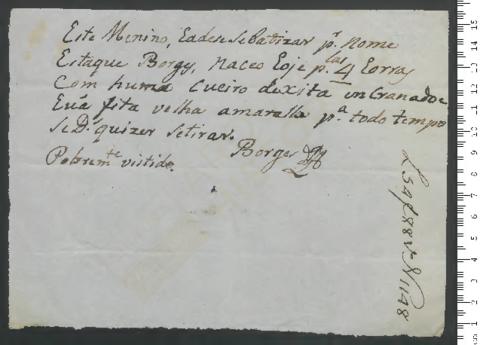 Este Menino, Eade se Batizar p.r nome
Estaque Borges, naceo Eoje p.las 4 Eorras
Com huma Cueiro de xita en Granado e
Euã fita velha amarella p.a todo tempo
se D.s quizer se tirar.
Borges
Pobrem.te vistido.
N 1148